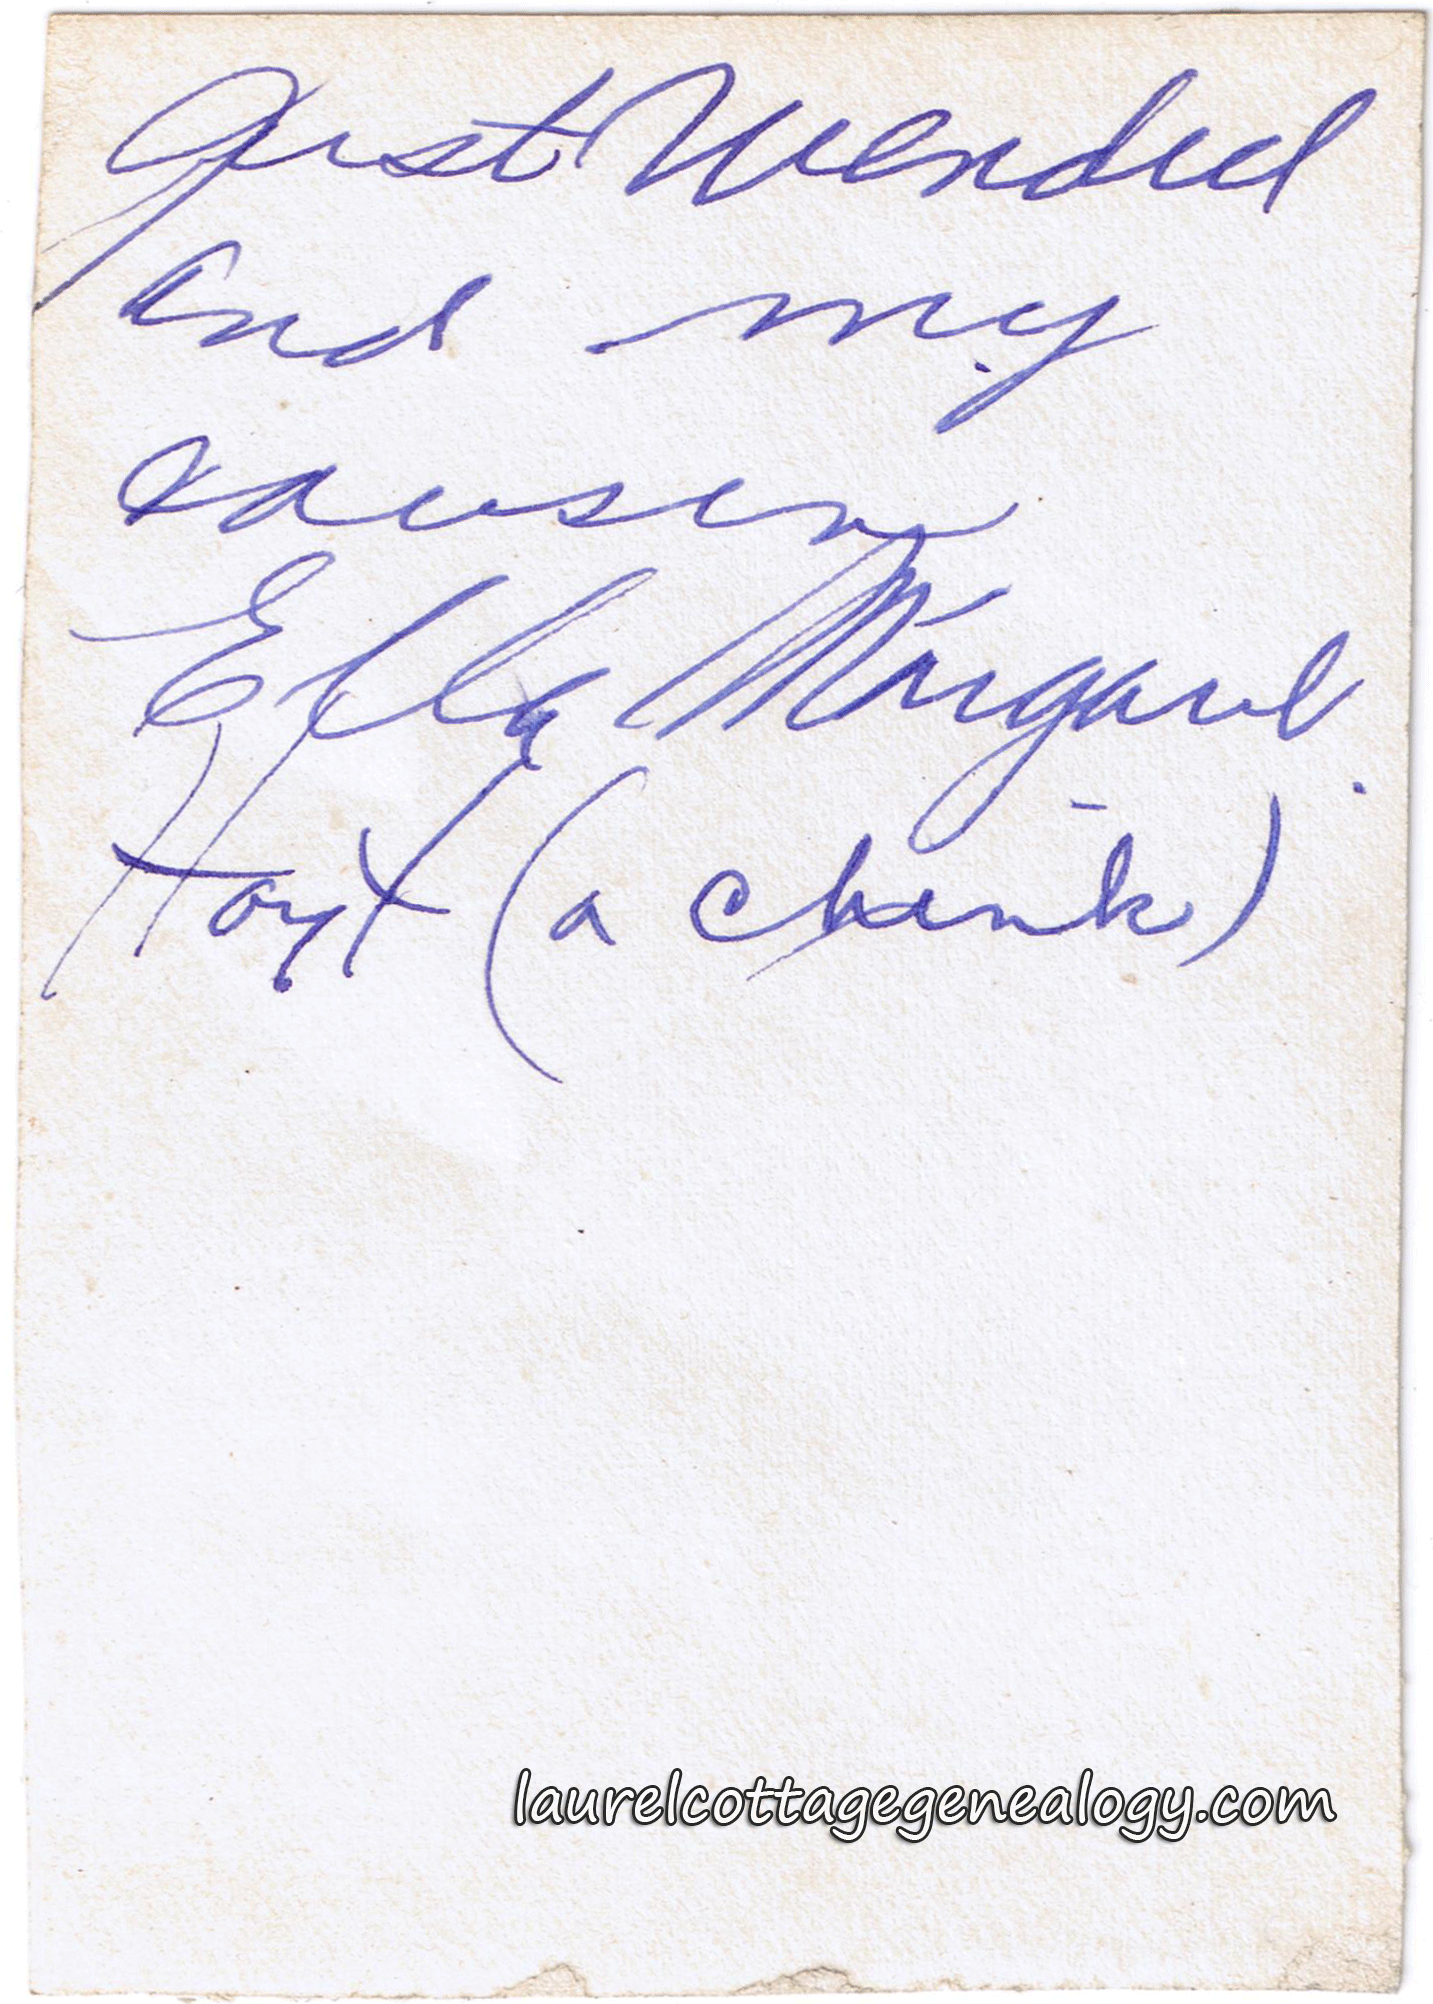 Gust Wendel
and my
cousin
Ella Morgaul
Hoyt (a chunk)
laurelcottagegenealogy.com